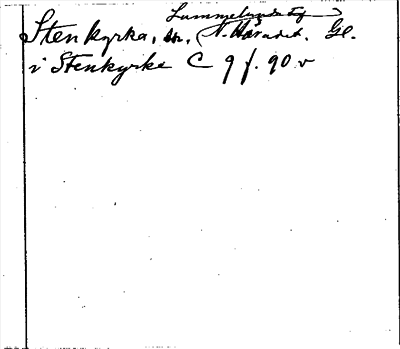 Lummelunda tg
Stenkyrka, sn, (N. Häradet. Gl.
i Stenkyrke C 9 f. 90 v